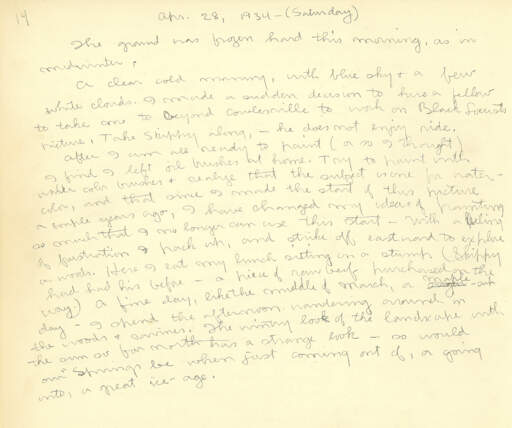 14
Apr. 28, 1934 - (Saturday)
The ground was frozen hard this morning, as in
midwinter.
A clear cold morning, with blue sky + a few
white clouds. I made a sudden decision to hire a fellow
to take me to beyond Coulesville to work on Black Locusts
picture, Take Skippy along, - he does not enjoy ride.
After I am all ready to paint (or so I thought)
I find I left oil brushes at home. Try to paint with
water color brushes + realize that the subject is one for water-
color, and that since I made the start of this picture
a couple years ago, I have changed my idea of painting
so much that I no longer can use this start - With a feeling
of frustration I pack up, and strike off eastward to explore
a woods. Here I eat my lunch sitting on a stump (Skippy
had had his before - a piece of raw beef purchased on the
way.) A fine day, like the middle of March, a maple
day - I spend the afternoon wandering around in
the woods + ravines. The wintry look of the landscape with
the sun so far north has a strange look - so would
our Springs be when just coming out of, or going
into, a great ice-age.